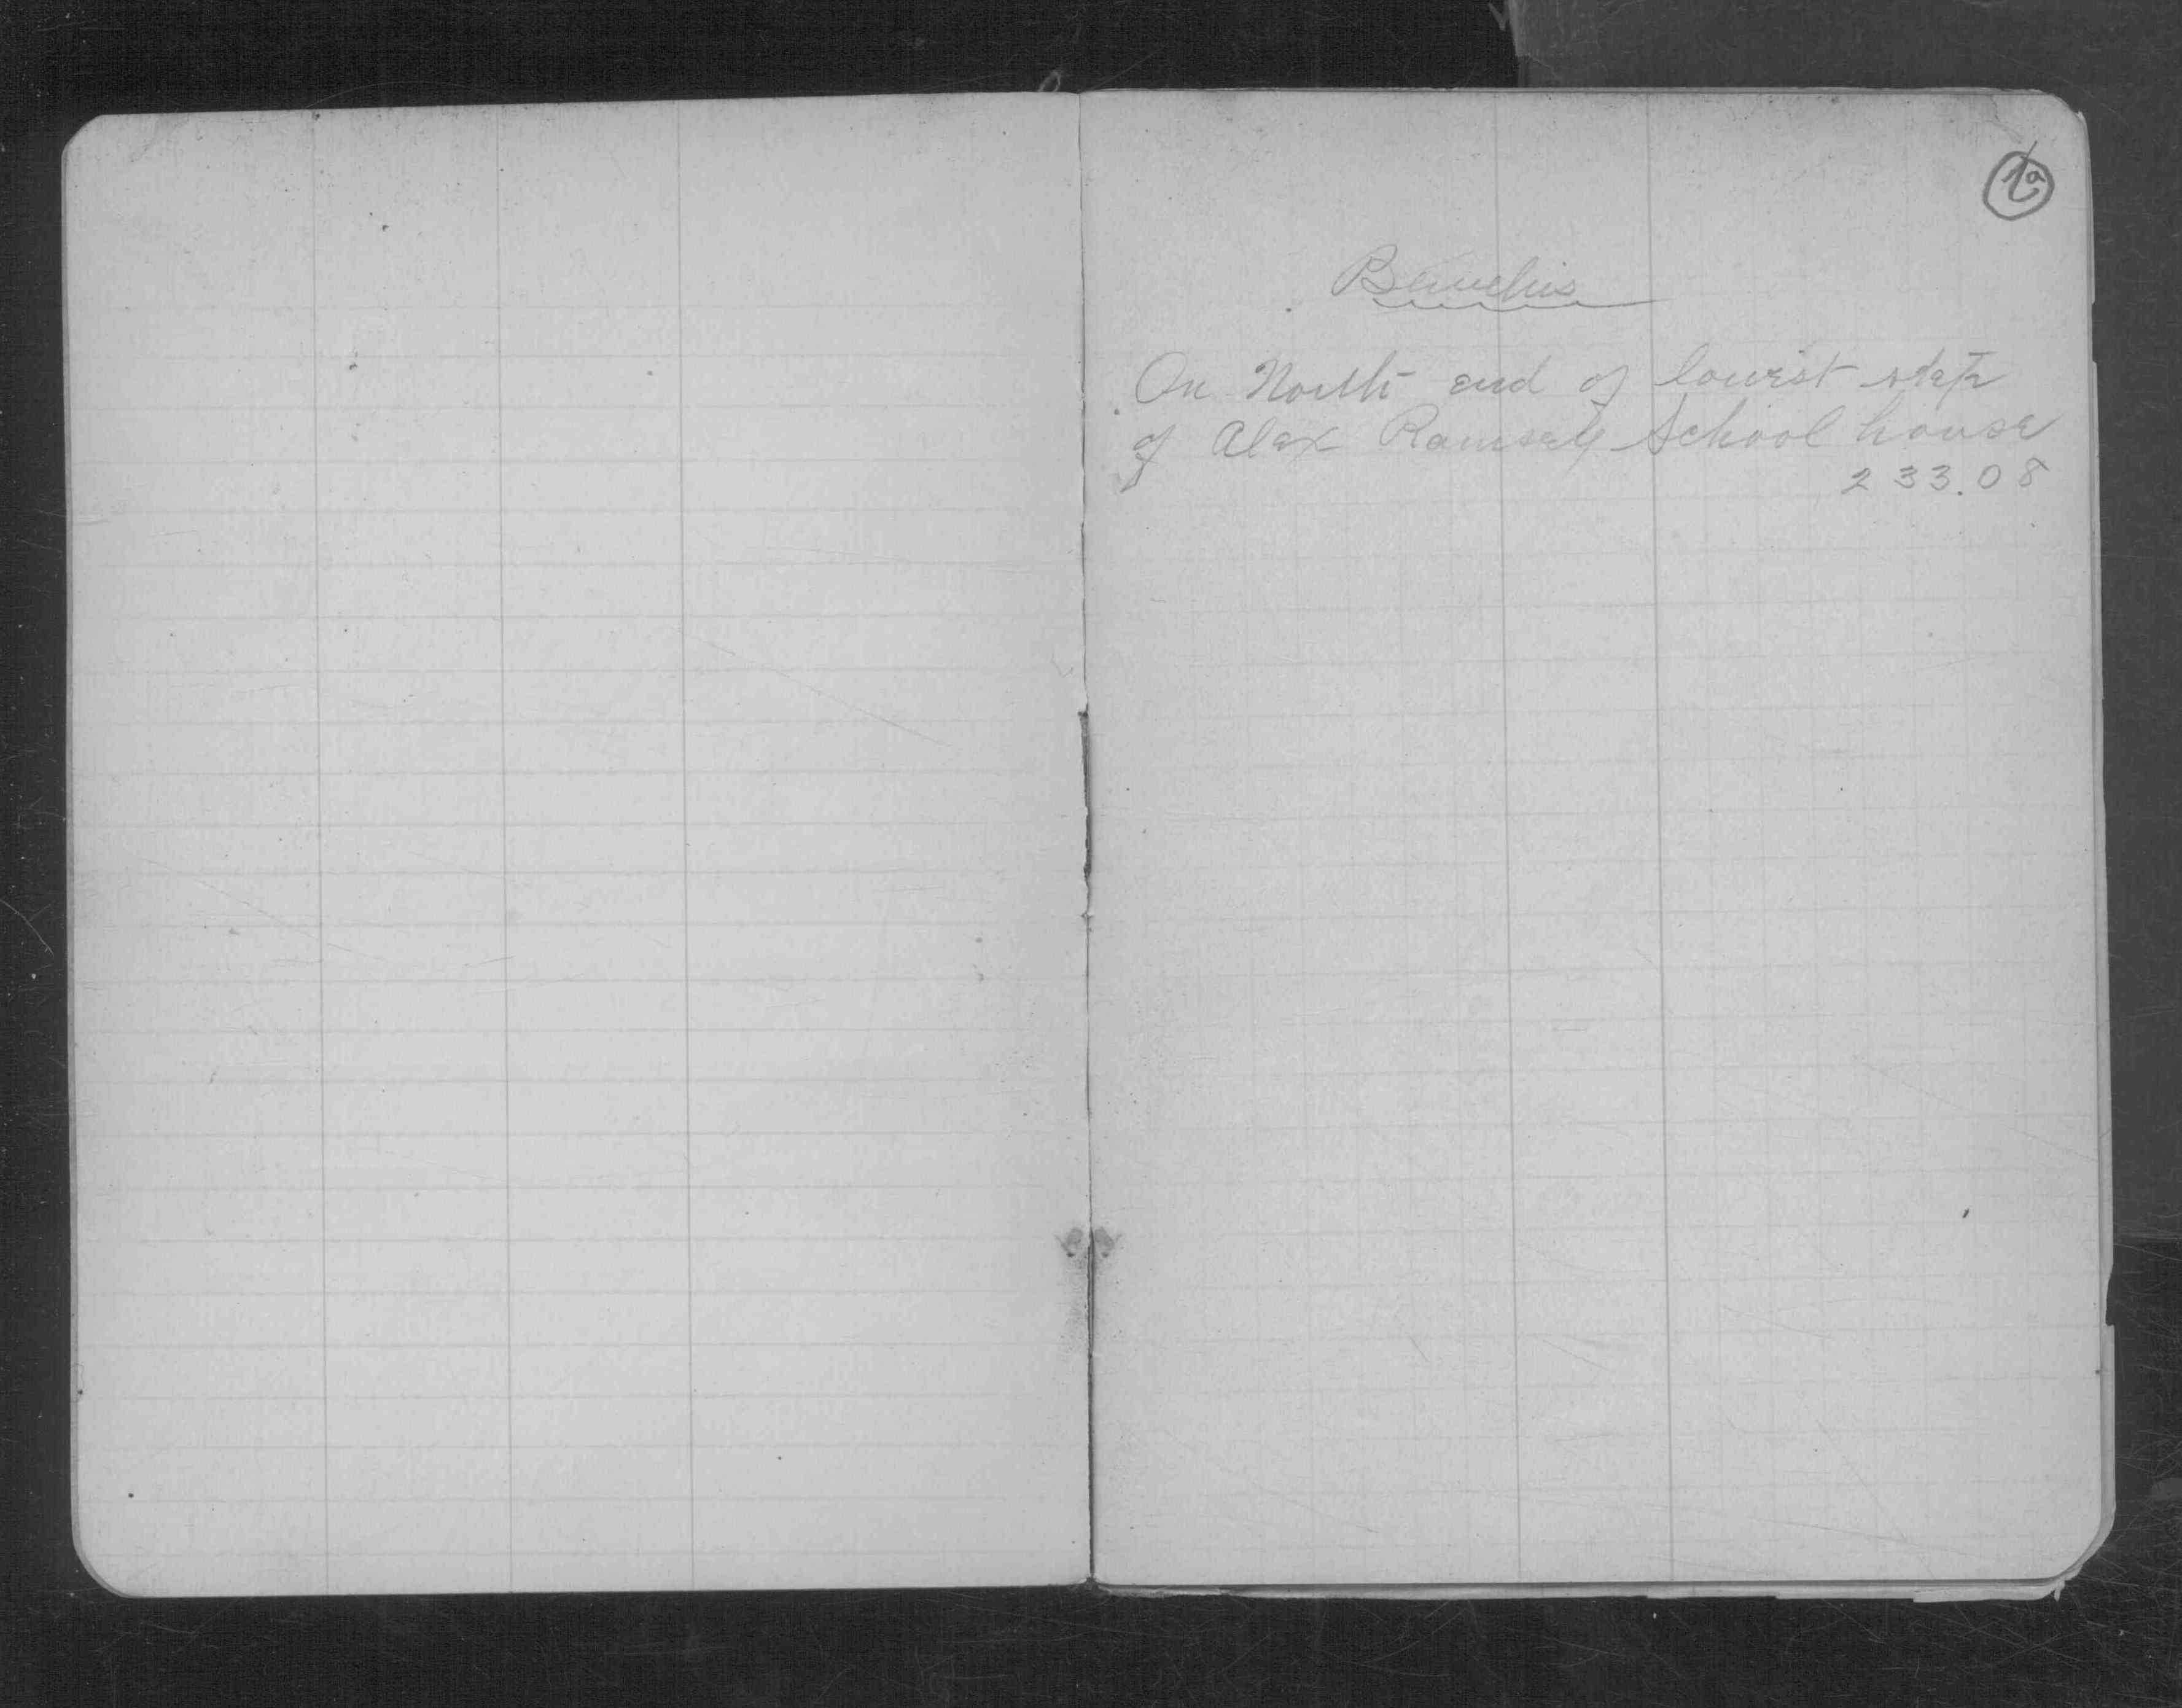 Benches
On North end of lowest step
of Alex Ramsey School house
233.08